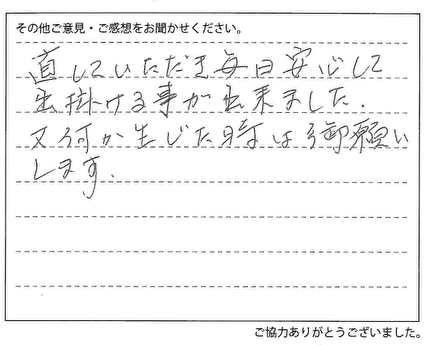 その他ご意見・ご感想をお聞かせください。
直していただき毎日安心して
出掛ける事が出来ました.
又何か生じた時は御願い
します.
ご協力ありがとうございました。